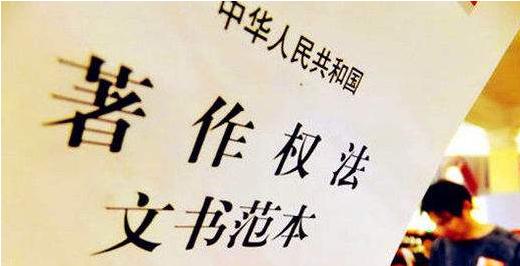 中华人民共和国
著作权法
文书范本